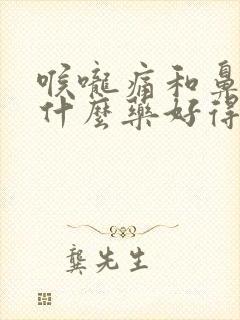 喉嚨痛和鼻
什麼藥好得
龔先生